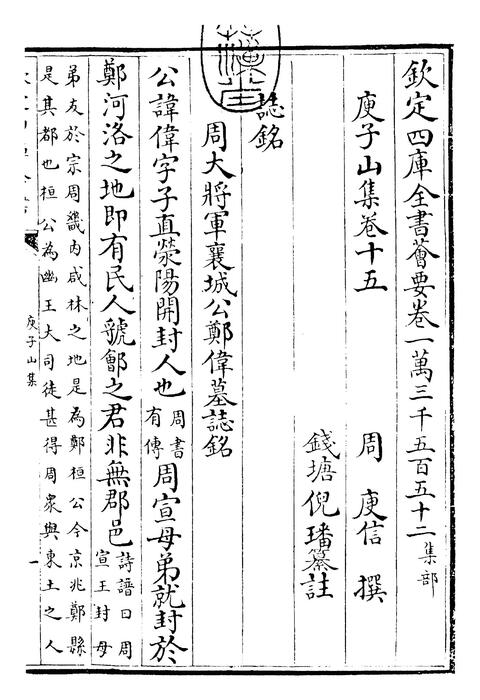 欽定四庫全書薈要卷一萬三千五百五十二集部
庾子山集卷十五
周　庾信　撰
錢塘倪璠纂註
誌銘
周大將軍襄城公鄭偉墓誌銘
公諱偉字子直滎陽開封人也周書有傳周宣母弟就封於
鄭河洛之地即有民人虢鄶之君非無郡邑詩譜曰周宣王封母
弟友於宗周畿内咸林之地是為鄭桓公今京兆鄭縣
是其都也桓公為幽王大司徒甚得周衆與東土之人
庾子山集
一